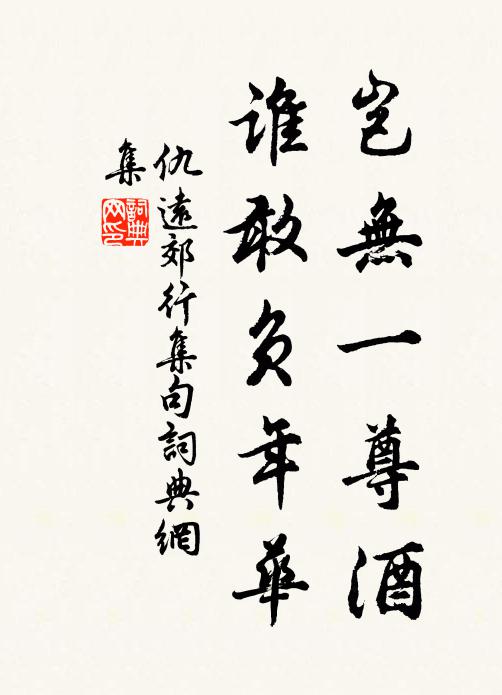 豈無一尊酒
誰敢負年華
仇遠郊行集句詞典網
集
詞典
网印